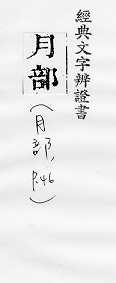 經典文字辨證書
月部
(月部, P.46)